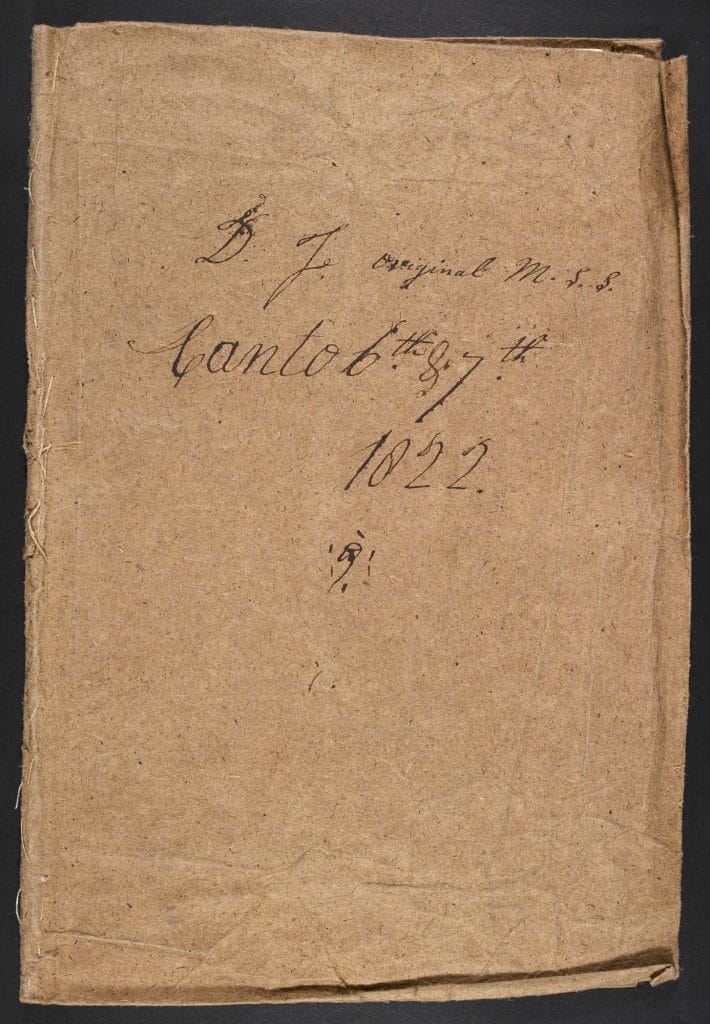 D. J. original M. S. S.
Canto 6.th & 7.th
1822.